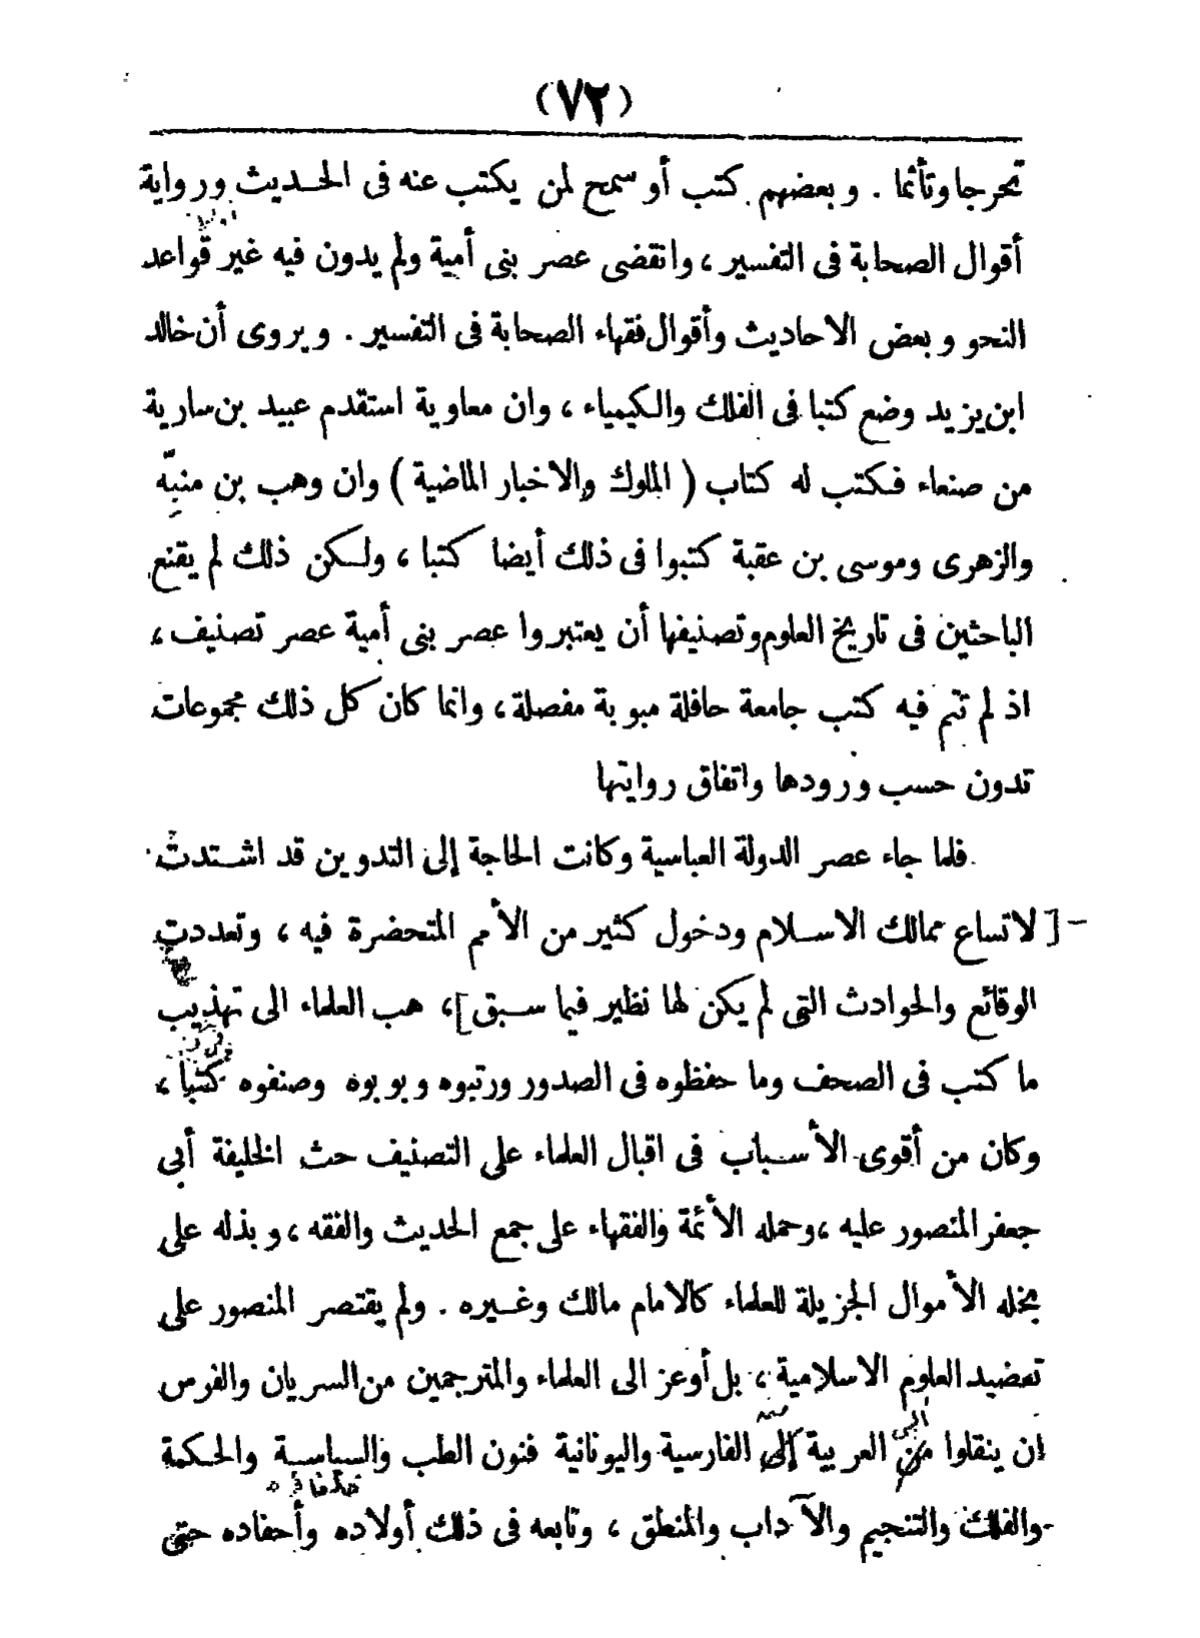 (٧٢)
تحرجا وتأثما . و بعضهم كتب أو سمح لمن يكتب عنه فى الحديث ورواية
أقوال الصحابة فى التفسير ، وانقضى عصر بنى أمية ولم يدون فيه غير قواعد
النحو و بعض الاحاديث وأقوال فقهاء الصحابة فى التفسير . و يروى أن خالد
ابن يزيد وضع كتبا فى الفلك والكيمياء ، وان معاوية استقدم عبيد بن سارية
من صنعاء فكتب له كتاب ( الملوك والاخبار الماضية ) وان وهب بن منبّه
والزهرى وموسى بن عقبة كتبوا فى ذلك أيضا كتبا ، ولكن ذلك لم يقنع
الباحثين فى تاريخ العلوم وتصنيفها أن يعتبروا عصر بنى أمية عصر تصنيف ،
اذ لم تتم فيه كتب جامعة حافلة مبوبة مفصلة ، وانما كان كل ذلك مجموعات
تدون حسب ورودها واتفاق روايتها
فلما جاء عصر الدولة العباسية وكانت الحاجة إلى التدوين قد اشتدت
- [ لاتساع ممالك الاسلام ودخول كثير من الأمم المتحضرة فيه ، وتعددت
الوقائع والحوادث التى لم يكن لها نظير فيما سبق ] ، هب العلماء الى تهذيب
ما كتب فى الصحف وما حفظوه فى الصدور ورتبوه وبوبوه وصنفوه كتبا ،
وكان من أقوى الأسباب فى اقبال العلماء على التصنيف حث الخليفة أبى
جعفر المنصور عليه ، وحمله الأئمة والفقهاء على جمع الحديث والفقه ، و بذله على
بخله الأموال الجزيلة للعلماء كالامام مالك وغيره . ولم يقتصر المنصور على
تعضيد العلوم الاسلامية ، بل أوعز الى العلماء والمترجمين من السريان والفرس
ان ينقلوا من العربية إلى الفارسية واليونانية فنون الطب والسياسة والحكمة
والفلك والتنجيم والآداب والمنطق ، وتابعه فى ذلك أولاده وأحفاده حتى